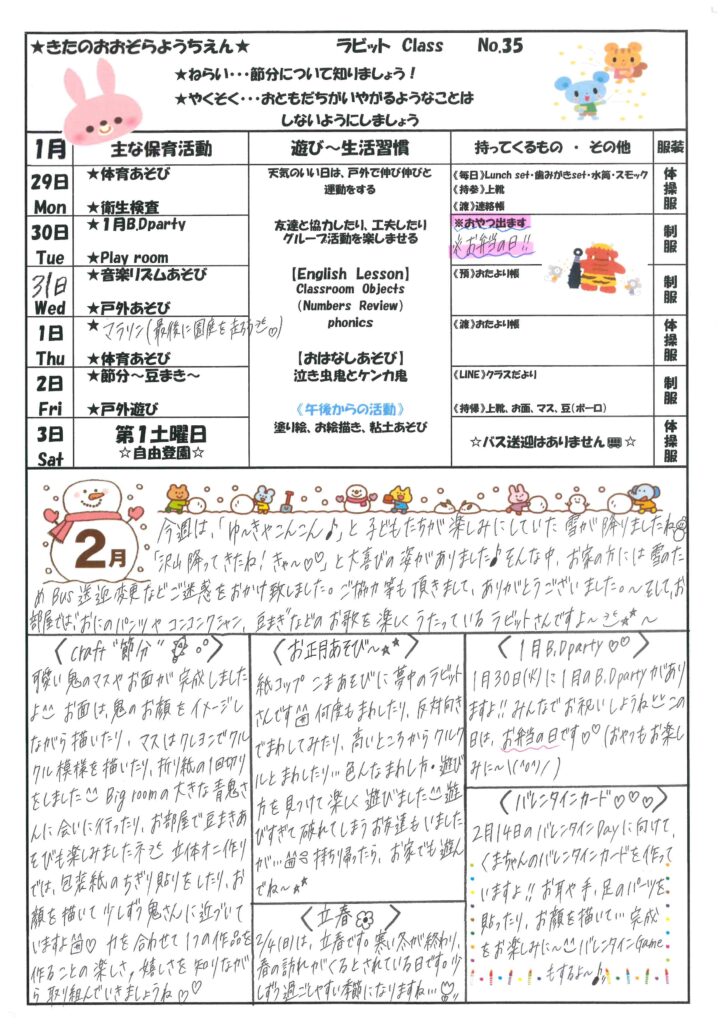 ★きたのおおぞらようちえん★ ラビット Class No.35
★ねらい・・・節分について知りましょう！
★やくそく・・・おともだちがいやがるようなことは
しないようにしましょう
1月 主な保育活動 遊び～生活習慣 持ってくるもの ・ その他 服装
29日 Mon
★体育あそび
★衛生検査
天気のいい日は、戸外で伸び伸びと
運動をする
《毎日》Lunch set・歯みがきset・水筒・スモック
《持参》上靴
《渡》連絡帳
体操服
30日 Tue
★1月B.Dparty
★Play room
友達と協力したり、工夫したり
グループ活動を楽しませる
※おやつ出ます
※お弁当の日!!
制服
31日 Wed
★音楽リズムあそび
★戸外あそび
【English Lesson】
Classroom Objects
(Numbers Review)
phonics
《預》おたより帳
制服
1日 Thu
★マラソン(最後に園庭を走ろう♡)
★体育あそび
【おはなしあそび】
泣き虫鬼とケンカ鬼
《渡》おたより帳
体操服
2日 Fri
★節分～豆まき～
★戸外遊び
《午後からの活動》
塗り絵、お絵描き、粘土あそび
《LINE》クラスだより
《持帰》上靴、お面、マス、豆(ボーロ)
制服
3日 Sat
第1土曜日
☆自由登園☆
☆バス送迎はありません☆
体操服
2月
今週は、「ゆ～きやこんこん♪」と子どもたちが楽しみにしていた雪が降りましたね
「沢山降ってきたね！きゃ～♡♡」と大喜びの姿がありました♪そんな中、お家の方には雪のた
めBus送迎変更などご迷惑をおかけ致しました。ご協力等も頂きまして、ありがとうございました。～そして、お
部屋では、おにのパンツやコンコンクシャン、豆まきなどのお歌を楽しくうたっているラビットさんですよ～
〈craft "節分"〉
可愛い鬼のマスやお面が完成しました
よ お面は、鬼のお顔をイメージし
ながら描いたり、マスはクレヨンでクル
クル模様を描いたり、折り紙の1回切り
をしました Big roomの大きな青鬼さ
んに会いに行ったり、お部屋で豆まきあ
そびも楽しみましたネ 立体オニ作り
では、包装紙のちぎり貼りをしたり、お
顔を描いて少しずつ鬼さんに近づいて
いますよ♡ 力を合わせて1つの作品を
作ることの楽しさ、嬉しさを知りなが
ら取り組んでいきましょうね♡♡
〈お正月あそび～★★〉
紙コップこまあそびに夢中のラビット
さんです 何度もまわしたり、反対向き
でまわしてみたり、高いところからクルク
ルとまわしたり… 色んなまわし方・遊び
方を見つけて楽しく遊びました 遊
びすぎて破れてしまうお友達もいました
が… 持ち帰ったら、お家でも遊ん
でね～★★
〈立春〉
2/4(日)は、立春です。寒い冬が終わり、
春の訪れがくるとされている日です。少
しずつ過ごしやすい季節になりますね…
〈1月B.Dparty♡♡〉
1月30日(火)に1月のB.Dpartyがあり
ますよ!!みんなでお祝いしようね この
日は、お弁当の日です♡♡(おやつもお楽し
みに～\(^o^)/)
〈バレンタインカード♡♡♡〉
2月14日のバレンタインDayに向けて、
くまちゃんのバレンタインカードを作って
いますよ!! お耳や手、足のパーツを
貼ったり、お顔を描いて… 完成
をお楽しみに～ バレンタインGame
もするよ～♪